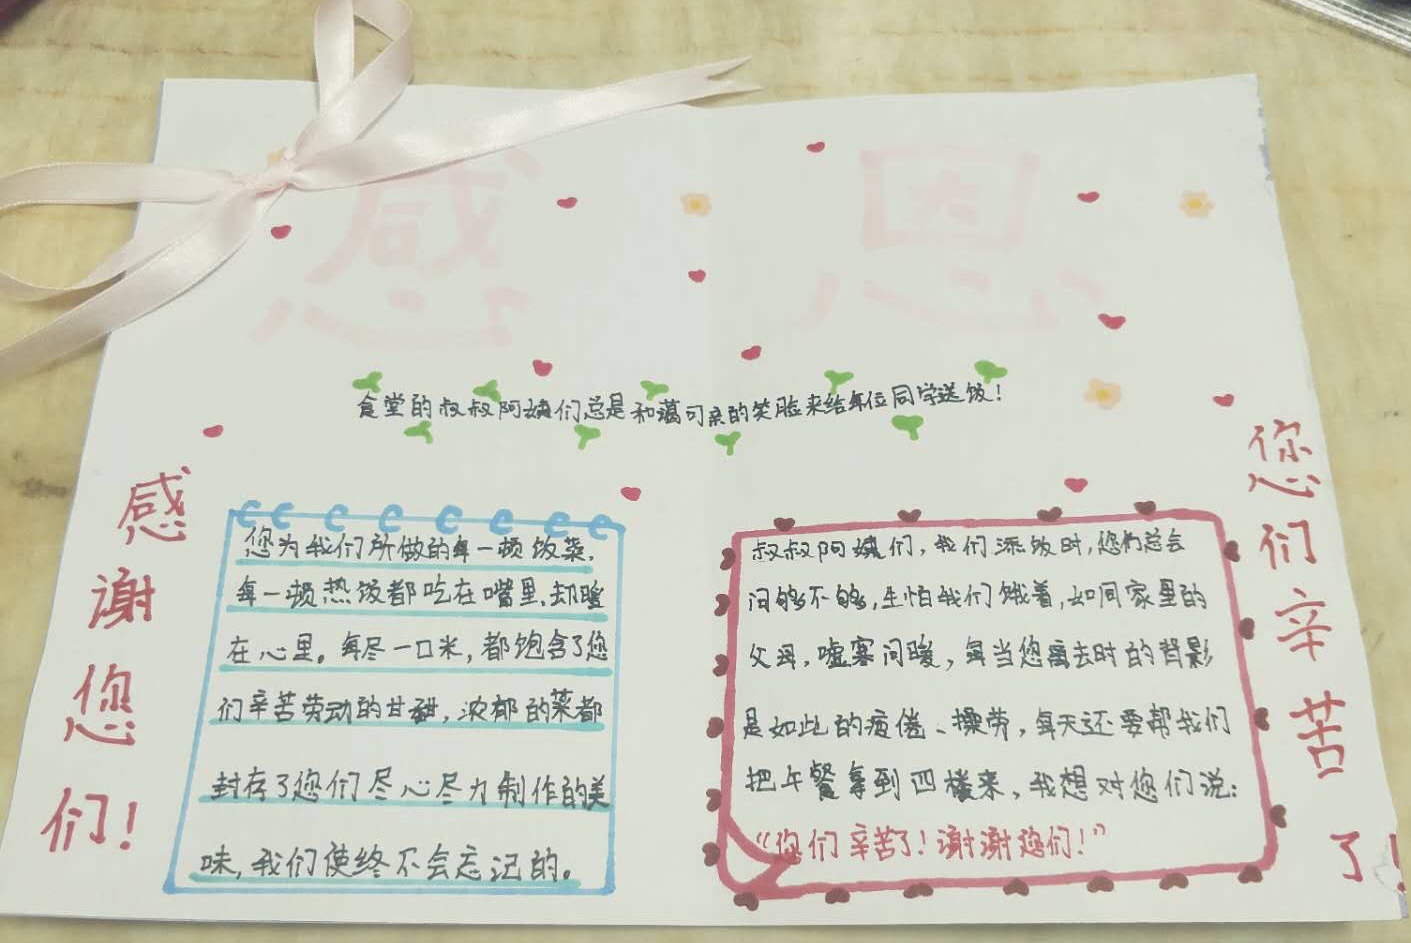 感恩
食堂的叔叔阿姨们总是和蔼可亲的笑脸来给每位同学送饭！
感谢您们！
您为我们所做的每一顿饭菜，
每一顿热饭都吃在嘴里，却暖
在心里。每尽一口米，都饱含了您
们辛苦劳动的甘甜，浓郁的菜都
封存了您们尽心尽力制作的美
味，我们使终不会忘记的。
叔叔阿姨们，我们添饭时，您们总会
问够不够，生怕我们饿着，如同家里的
父母，嘘寒问暖，每当您离去时的背影
是如此的疲倦、操劳，每天还要帮我们
把午餐拿到四楼来，我想对您们说：
“您们辛苦了！谢谢您们！”
您们辛苦了！